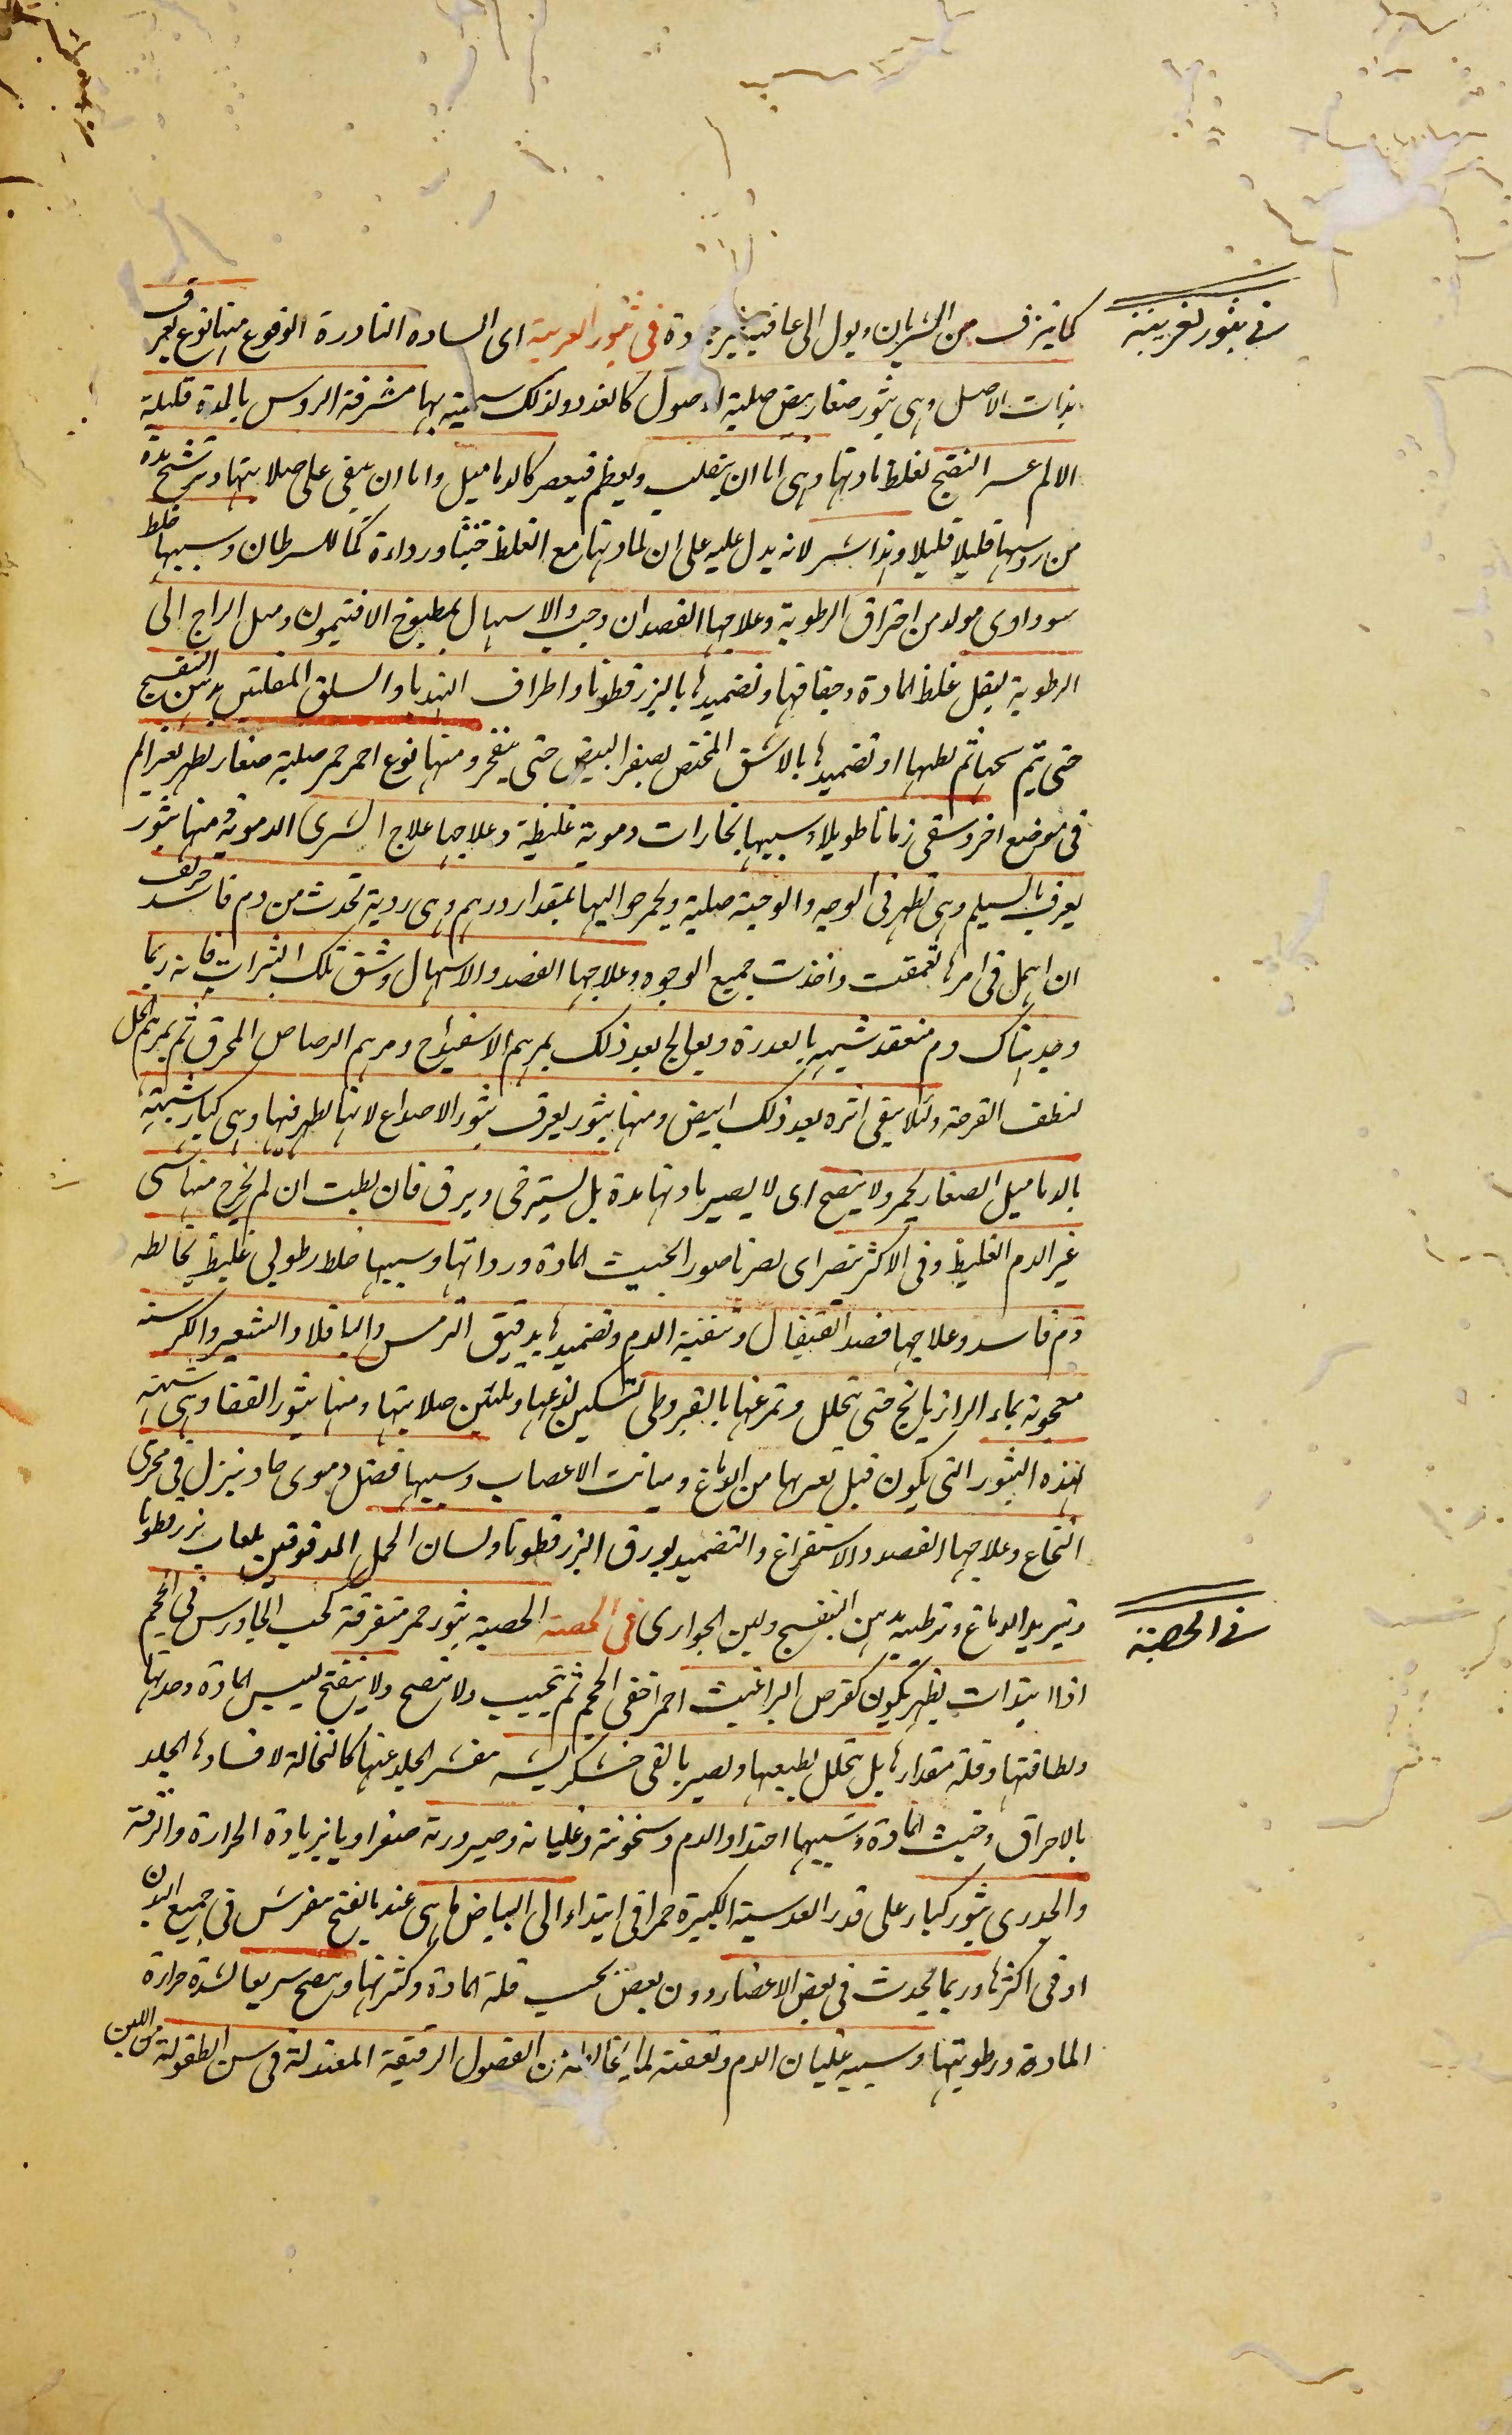 في بثور الغريبة
كما ينزف من الشريان ويول الى عافية غير ردة في بثور الغريبة اى الساده النادرة الوقوع منها نوع يعرف
بذات الاصل وهى بثور صغار بيض صلبة الاصول كالغدد ولذلك سميته بها مشرفة الروس بالمدة قليلة
الالم عسر النضج لغلظ مادتها وهى اما ان ينقلب ويعظم فيعصر كالدماميل واما ان يبقى على صلابتها ويترشح مدة
من روسها قليلا قليلا وهذا شر لانه يدل عليه على ان لمادتها مع الغلظ خبثا ورداءة كما للسرطان وسببها خلط
سوداوى مولد من احتراق الرطوبة وعلاجها الفصد ان وجب والاسهال بمطبوخ الافتيمون وميل المزاج الى
الرطوبة ليقل غلظ المادة وجفافها وتضميدها بالبزرقطونا واطراف الهندبا والسلق المغليتين بدهن البنفسج
حتى يتم نضجها ثم بطها او تضميدها بالاشق المختص بصفر البيض حتى ينفجر ومنها نوع احمر حمر صلبة صغار تظهر بغير الم
فى موضع اخر وسقى زمانا طويلا وسببها بخارات دموية غليظة وعلاجها علاج الشرى الدموية ومنها بثور
يعرف بالسيلم وهى تظهر فى الوجه والوجنة صلبة ويحمر حواليها بمقدار درهم وهى ردية تحدث من دم فاسد حريف
ان اهمل فى امرها تعمقت واخذت جميع الوجوه وعلاجها الفصد والاسهال وشق تلك البثرات فانه ربما
وجد هناك دم منعقد شبيه بالعدرة ويعالج بعد ذلك بمرهم الاسفيداج ومرهم الرصاص المحرق ثم بمرهم الخل
لنظف القرحة ولئلا يبقى اثره بعد ذلك ابيض ومنها بثور يعرف بثور الاصداع لانها تظهر فيها وهى كبار شبيهة
بالدماميل الصغار يحمر ولا ينضج اى لا يصير مادتها مدة بل يسترخى ويرق فان بطت ان لم يخرج منها شى
غير الدم الغليظ وفى الاكثر ينصر اى يصر ناصور الخبث المادة ورداتها وسببها خلط رطوبى غليظ يخالطه
دم فاسد وعلاجها فصد القيفال وتنقية الدم وتضميدها بدقيق الترمس والباقلا والشعير والكرسنه
معجونة بماء الرازيانج حتى يتحلل وتمرخها بالقيروطى لتسكين لذعها وتليين صلابتها ومنها بثور القفا وهى شبيهة
لهذه البثور التى يكون قبل تعربها من الدماغ ومباىت الاعصاب وسببها فضل دموى حاد ينزل فى مجرى
النخاع وعلاجها الفصد والاستفراغ والتضميد بورق البزرقطونا ولسان الحمل المدقوقين بلعاب بزرقطونا
وتبريد الدماغ وترطيبه بدهن البنفسج ولبن الجوارى فى الحصبة الحصبة بثور حمر متفرقة كحب الجاورس فى الحجم
في الحصبة
اذا ابتدات يظهر يكون كقرص البراغيث احمر اخفى الحجم ثم تحبب ولا ينضج ولا ينفتح ليبس المادة وحدتها
ولطافتها وقلة مقدارها بل يتحلل بطيعها ويصير بالقى خشكريشه مقشر الجلد عنها كالنخالة لافسادها الجلد
بالاحراق وخبث المادة وسببها احتداد الدم وسخونته وغليانه وصيرورته صفراويا بزيادة الحرارة والرقة
والجدرى بثور كبار على قدر العدسية الكبيرة حمر فى ابتداء الى البياض ما هى عند ما ينفتح مفرش فى جميع البدن
او فى اكثرها وربما يحدث فى بعض الاعضاء دون بعض بحسب قلة المادة وكثرتها وينضج سريعا لشدة حرارة
المادة ورطوبتها وسببه غليان الدم وتعفنه لما يخالطه من الفضول الرقيقة المعتدلة فى سن الطفولة من اللبن